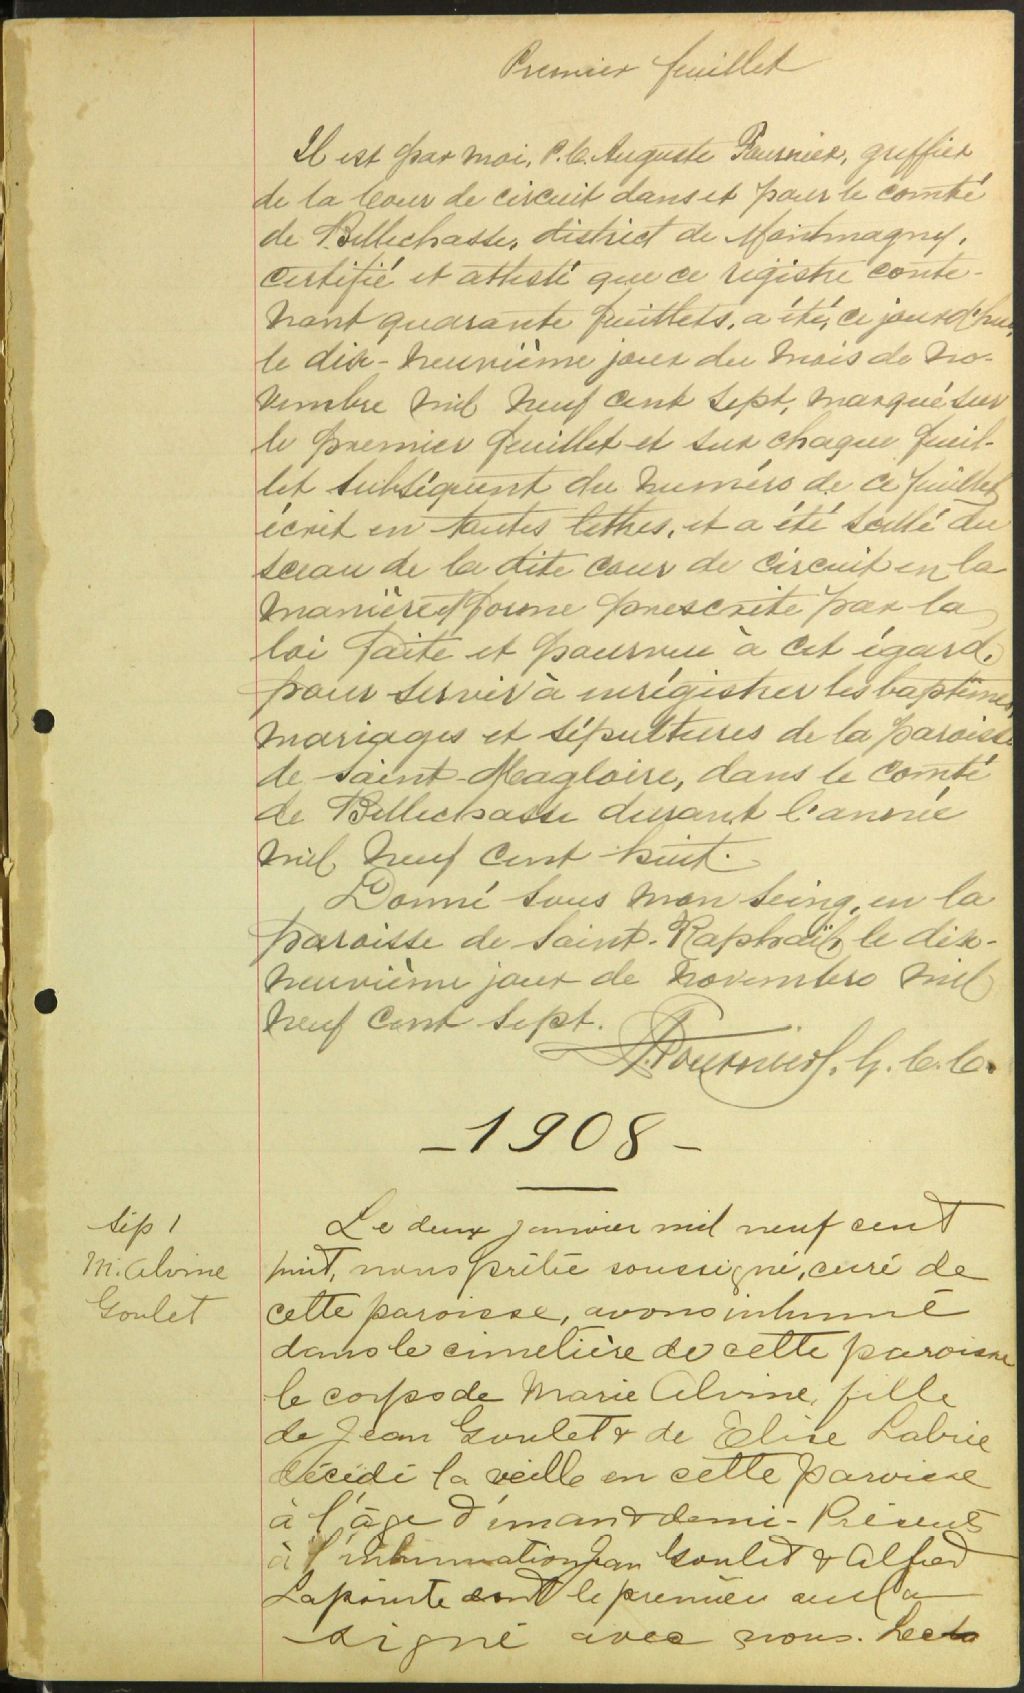 Premier feuillet
Il est par moi, P. C. Auguste Fournier, greffier
de la Cour de circuit dans et pour le comté
de Bellechasse, district de Montmagny,
certifié et attesté que ce régistre conte-
nant quarante feuillets, a été, ce jourd'hui,
le dix-neuvième jour du mois de no-
vembre mil neuf cent sept, marqué sur
le premier feuillet et sur chaque feuil-
let subséquent du numéro de ce feuillet
écrit en toutes lettres, et a été scellé du
sceau de la dite cour de circuit en la
manière et forme prescrite par la
loi faite et pourvue à cet égard,
pour servir à enrégistrer les baptêmes,
mariages et sépultures de la paroisse
de Saint-Magloire, dans le comté
de Bellechasse durant l'année
mil neuf cent huit.
Donné sous mon seing, en la
paroisse de Saint-Raphaël, le dix-
neuvième jour de novembre mil
neuf cent sept.
Fournier, G. C. C.
- 1908 -
Sép 1
M. Alvine
Goulet
Le deux janvier mil neuf cent
huit, nous prêtre soussigné, curé de
cette paroisse, avons inhumé
dans le cimetière de cette paroisse
le corps de Marie Alvine, fille
de Jean Goulet & de Elise Labrie
décédé la veille en cette paroisse
à l'âge d'un an & demi - Présents
à l'inhumation Jean Goulet & Alfred
Lapointe dont le premier seul a
signé avec nous. Lecto